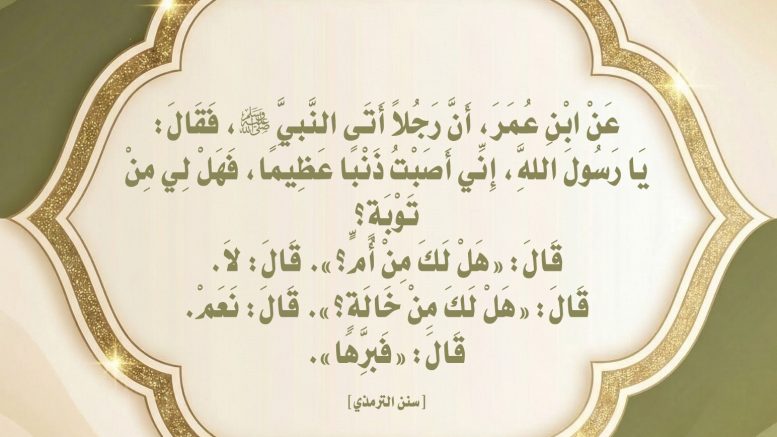 عَنْ ابْنِ عُمَرَ، أَنَّ رَجُلاً أَتَى النَّبيَّ ﷺ، فَقَالَ:
يَا رَسُولَ اللهِ، إِنِّي أَصَبْتُ ذَنْبًا عَظِيمًا، فَهَلْ لِي مِنْ
تَوْبَة؟
قَالَ: «هَلْ لَكَ مِنْ أُمٍّ؟». قَالَ: لاَ.
قَالَ: «هَلْ لَكَ مِنْ خَالَةٍ؟». قَالَ: نَعَمْ.
قَالَ: «فَبرَّهَا».
[سنن الترمذي]